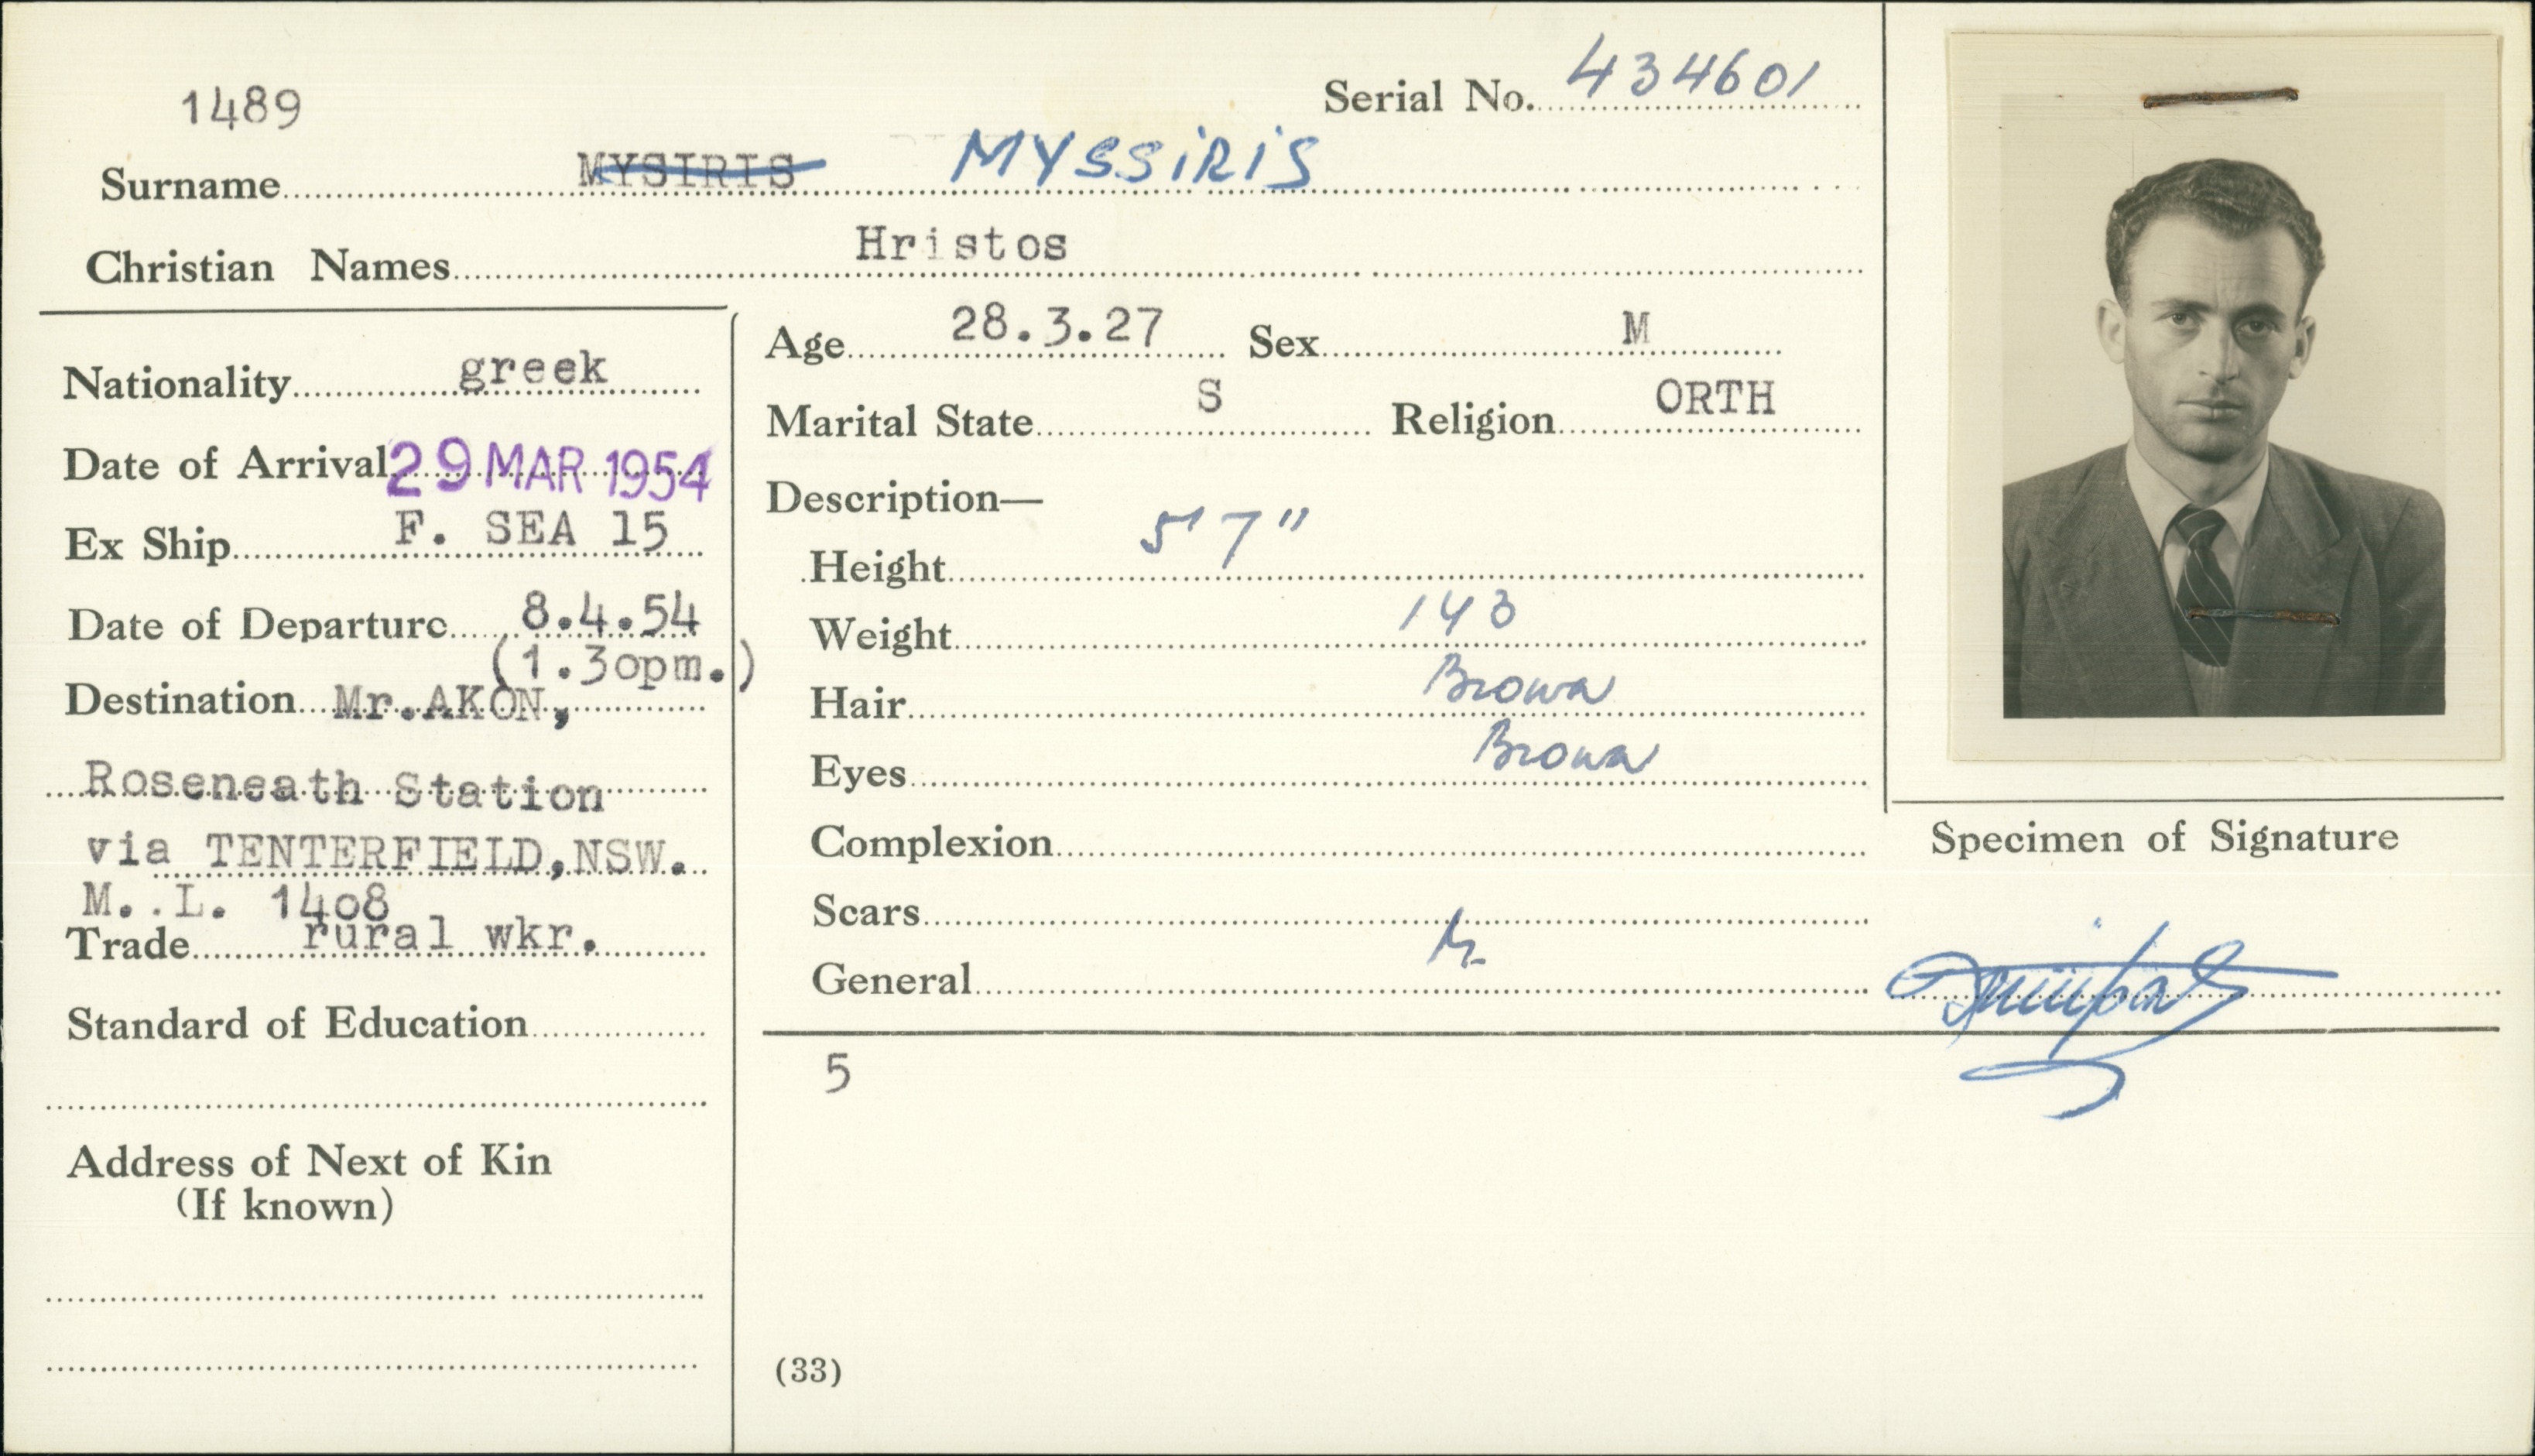 1489
Serial No. 434601
Surname MYSIRIS MYSSiRiS
Christian Names Hristos
Nationality greek
Date of Arrival 29 MAR 1954
Ex Ship F. SEA 15
Date of Departure 8.4.54
(1.30pm.)
Destination Mr.AKON,
Roseneath Station
via TENTERFIELD,NSW.
M..L. 1408
Trade rural wkr.
Standard of Education
Address of Next of Kin
(If known)
Age 28.3.27 Sex M
Marital State S Religion ORTH
Description—
Height 5' 7"
Weight 143
Hair Brown
Eyes Brown
Complexion
Scars
General
5
(33)
Specimen of Signature